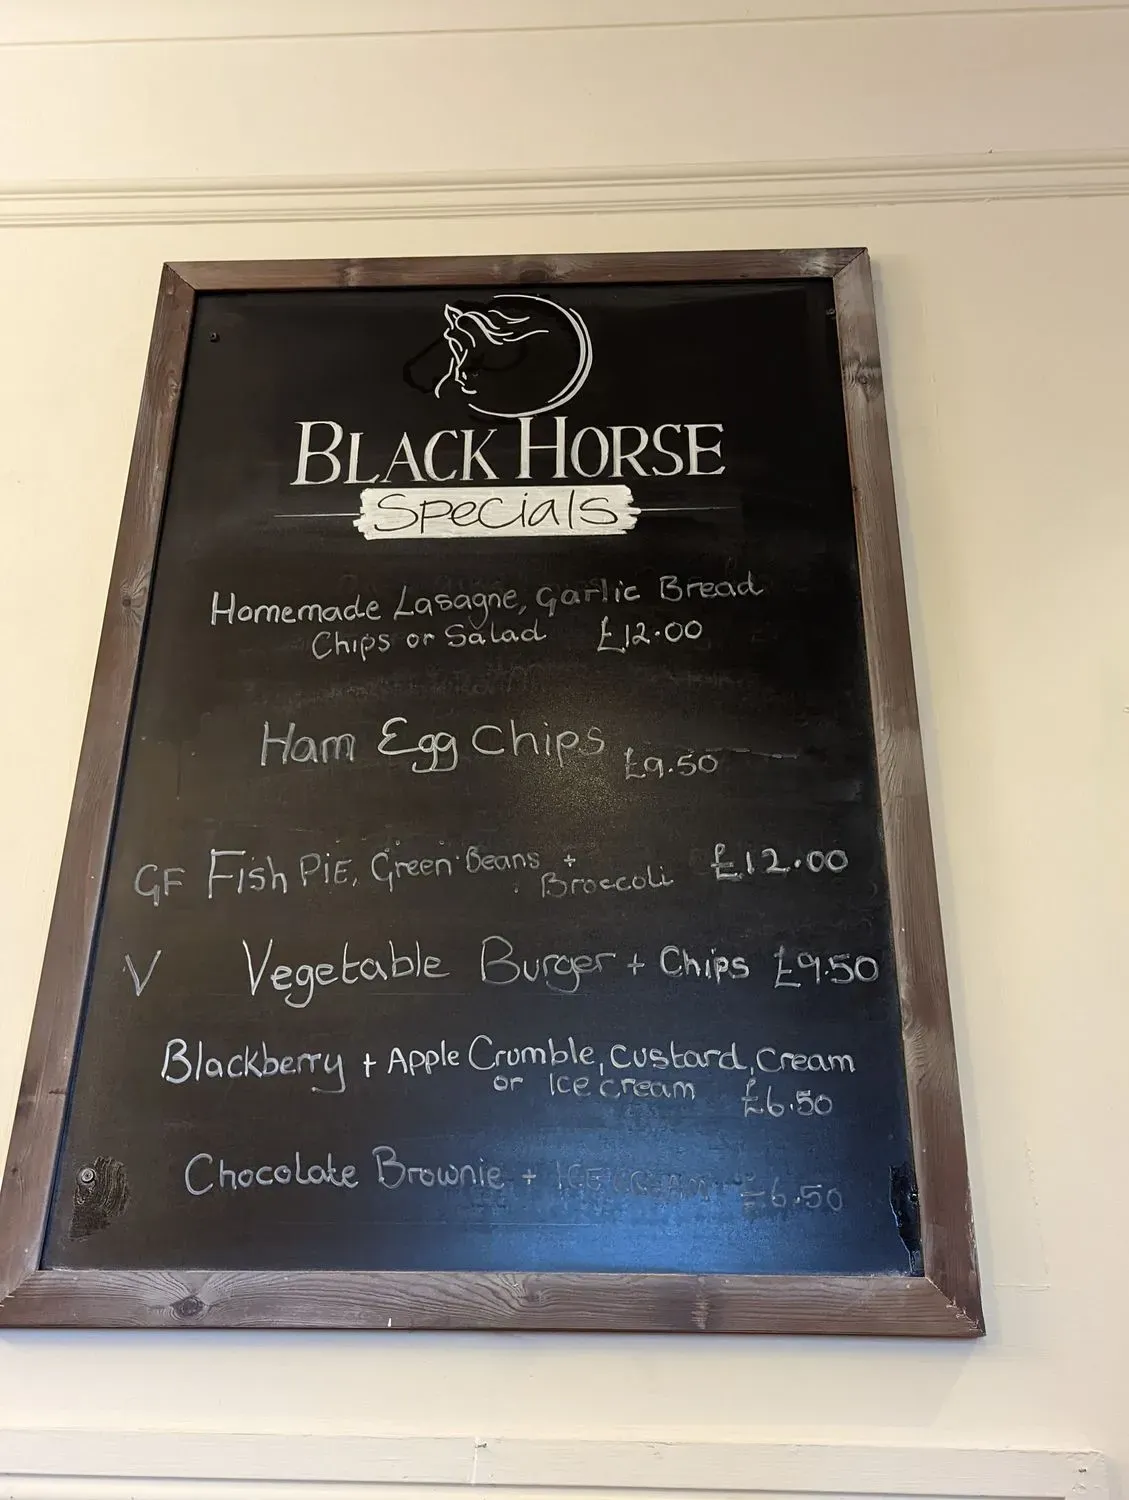 BLACK HORSE
Specials
Homemade Lasagne, Garlic Bread
Chips or Salad £12.00
Ham Egg Chips £9.50
GF Fish PIE, Green Beans +
Broccoli £12.00
V Vegetable Burger + Chips £9.50
Blackberry + Apple Crumble, Custard, Cream
or Ice cream £6.50
Chocolate Brownie + ICE CREAM £6.50